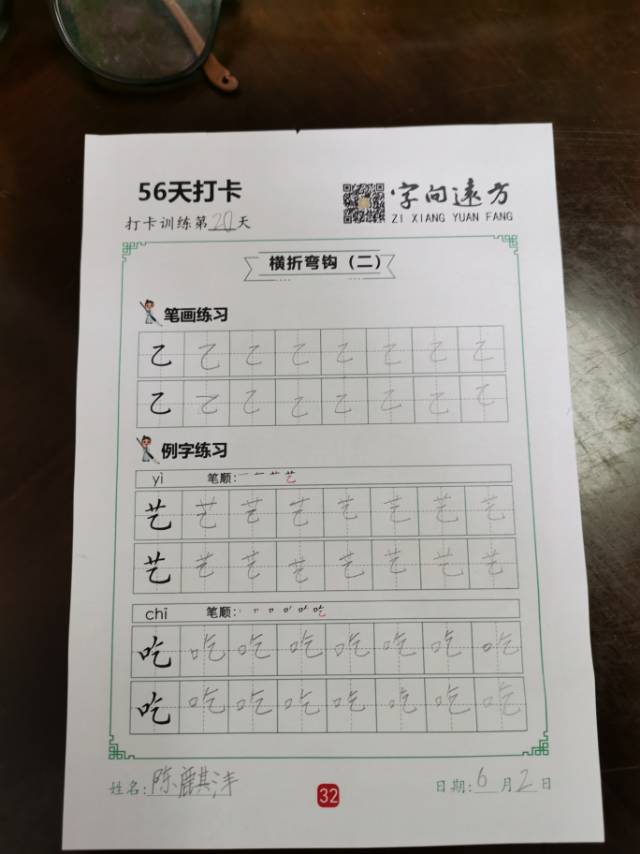 56天打卡
字向远方
打卡训练第20天
ZI XIANG YUAN FANG
横折弯钩（二）
笔画练习
乙 乙 乙 乙 乙 乙 乙 乙
乙 乙 乙 乙 乙 乙 乙 乙
例字练习
yì 笔顺: 一 艹 艺
艺 艺 艺 艺 艺 艺 艺 艺
艺 艺 艺 艺 艺 艺 艺 艺
chī 笔顺: 吃
吃 吃 吃 吃 吃 吃 吃 吃
吃 吃 吃 吃 吃 吃 吃 吃
姓名: 陈麒沣
32
日期: 6月2日